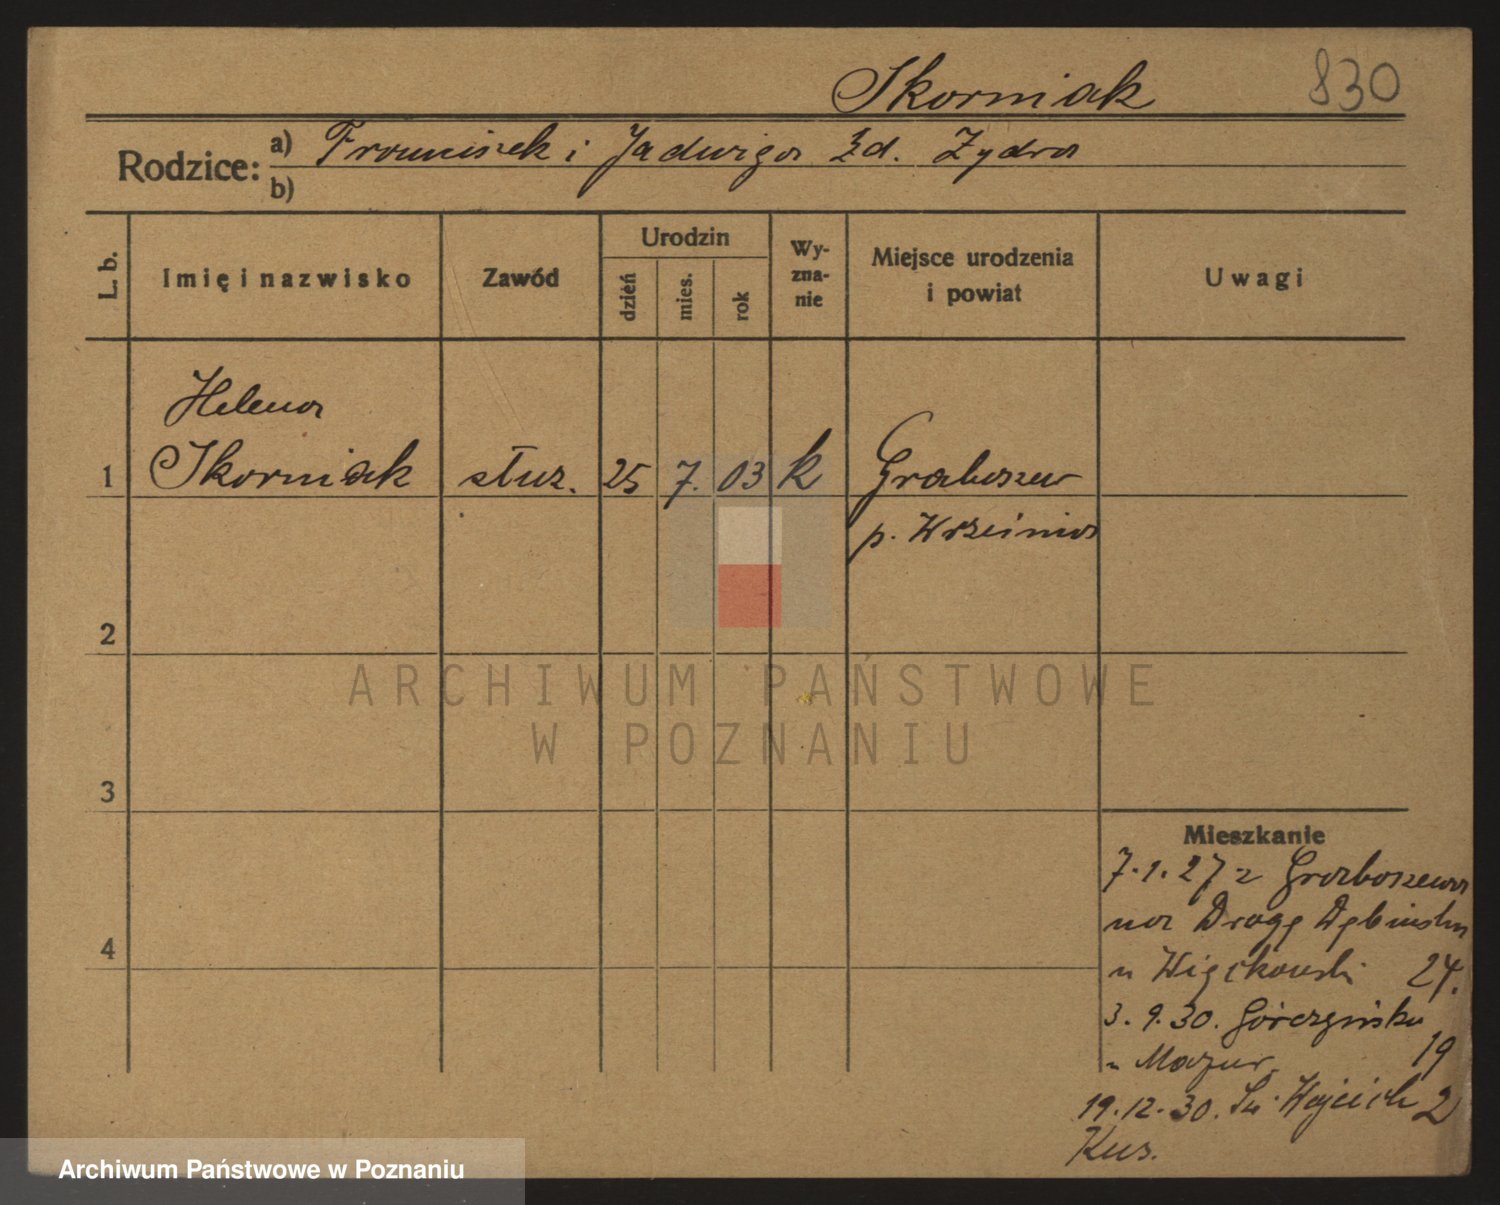 Skorniak 830
Rodzice: a) Franciszek i Jadwiga zd. Zydra
b)
L. b. Imię i nazwisko Zawód Urodzin dzień mies. rok Wyznanie Miejsce urodzenia i powiat Uwagi
Helena
1 Skorniak służ. 25 7. 03 k Graboszew
p. Września
2
ARCHIWUM PAŃSTWOWE
W POZNANIU
3
Mieszkanie
7.1.27 z Graboszewa
na Drogę Dębińską
4
u Więckowski 24.
3.9.30. Górczyńska
u Mazur 19
19.12.30. Św. Wojciech 2
Kus.
Archiwum Państwowe w Poznaniu